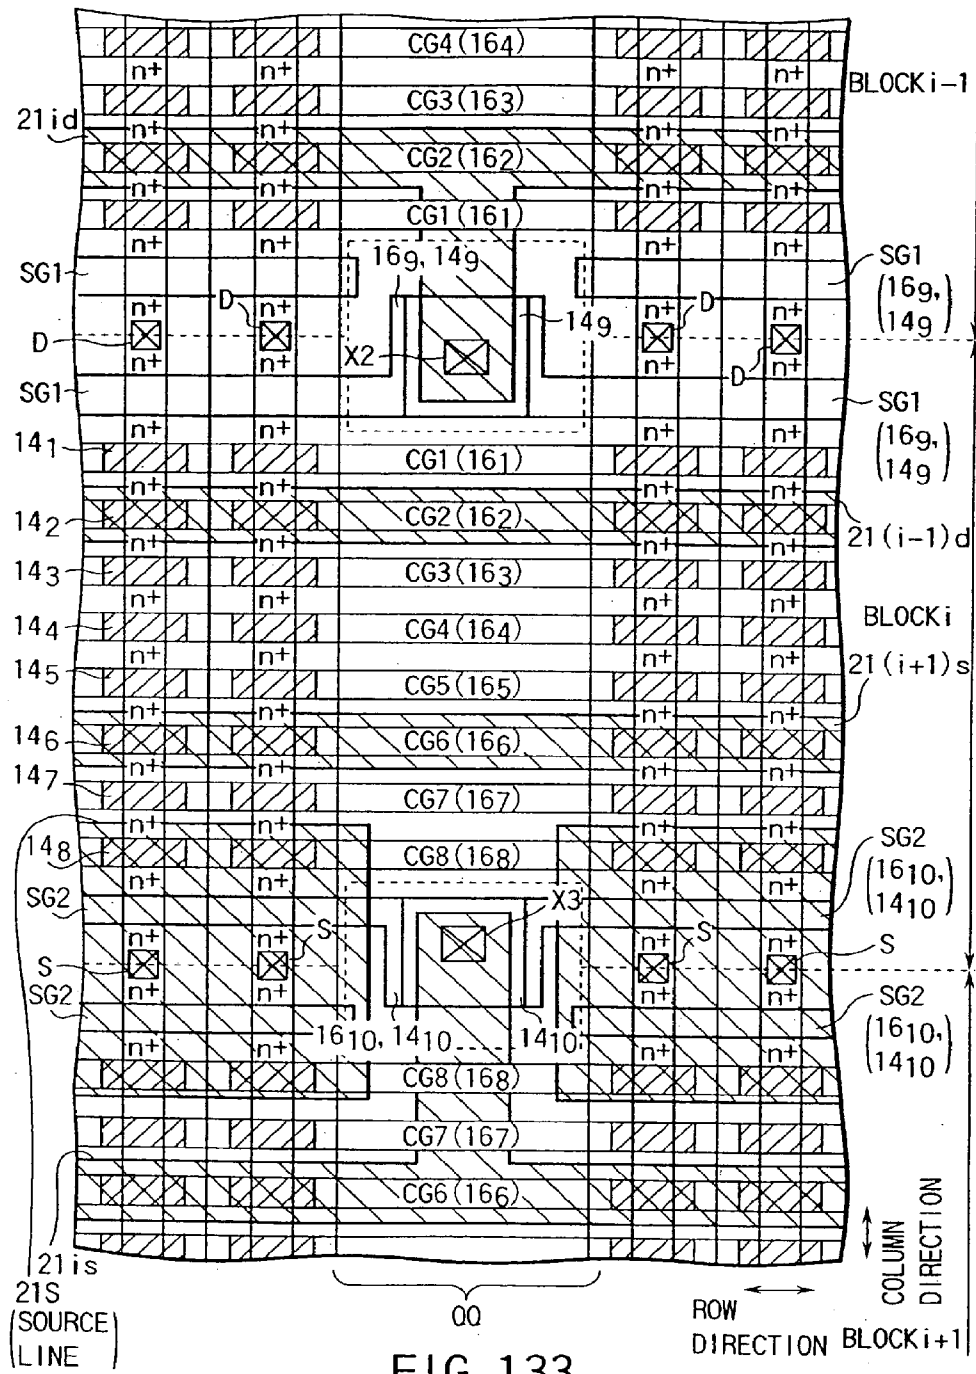 CG4(164)
n+ n+ n+ n+
BLOCKi-1
CG3(163)
21id
n+ n+ n+ n+
CG2(162)
n+ n+ n+ n+
CG1(161)
n+ n+ n+ n+
SG1
169, 149
SG1
(169,
149)
n+ D n+ n+ D n+
D
X2
149
n+ n+ n+ n+
D
SG1
SG1
(169,
149)
n+ n+ n+ n+
141
CG1(161)
n+ n+ n+ n+
142
CG2(162)
21(i-1)d
n+ n+ n+ n+
143
CG3(163)
n+ n+ n+ n+
BLOCKi
144
CG4(164)
n+ n+ n+ n+
145
CG5(165)
21(i+1)s
n+ n+ n+ n+
146
CG6(166)
n+ n+ n+ n+
147
CG7(167)
n+ n+ n+ n+
148
CG8(168)
SG2
(1610,
1410)
n+ n+ n+ n+
SG2
X3
n+ n+ S n+ S n+
S
S
n+ n+ n+ n+
SG2
SG2
(1610,
1410)
1610, 1410
1410
n+ n+ n+ n+
CG8(168)
CG7(167)
CG6(166)
21is
21S
(SOURCE
LINE)
QQ
ROW
DIRECTION
COLUMN
DIRECTION
BLOCKi+1
FIG. 133